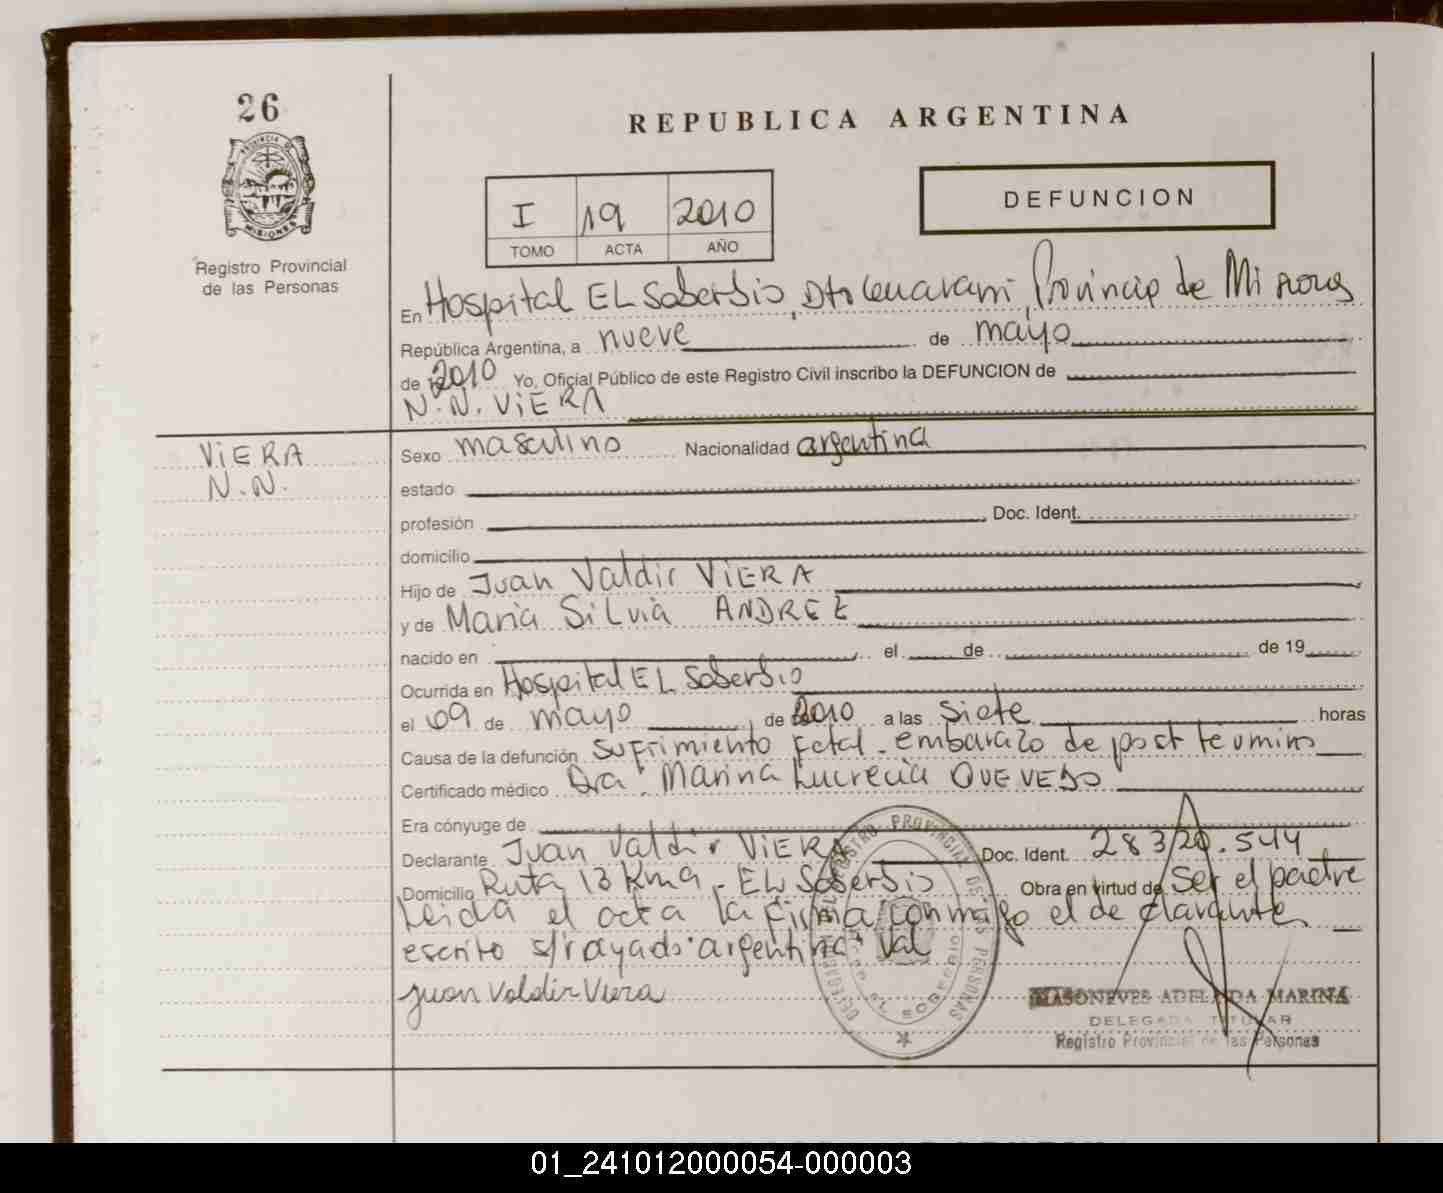 26
PROVINCIA DE
MISIONES
Registro Provincial
de las Personas
REPUBLICA ARGENTINA
I 19 2010
TOMO ACTA AÑO
DEFUNCION
En Hospital EL Soberbio, Dto Guarani, Provincia de Misiones
República Argentina, a nueve de mayo
de 2010 Yo, Oficial Público de este Registro Civil inscribo la DEFUNCION de
N.N. ViERA
VIERA
N.N.
Sexo masculino Nacionalidad argentina
estado
profesión Doc. Ident.
domicilio
Hijo de Juan Valdir VIERA
y de Maria Silvia ANDREE
nacido en el de de 19
Ocurrida en Hospital EL Soberbio
el 09 de mayo de 2010 a las siete horas
Causa de la defunción sufrimiento fetal - embarazo de post termino
Certificado médico Dra. Marina Lucrecia QUEVEDO
Era cónyuge de
Declarante Juan Valdir VIERA Doc. Ident. 28.320.544
Domicilio Ruta 13 Km 9 - EL Soberbio Obra en virtud de ser el padre
Leida el acta la firma conmigo el declarante.
escrito s/rayado "argentina" Val
Juan Valdir Viera
REGISTRO PROVINCIAL DE LAS PERSONAS
EL SOBERBIO
MASONEVES ADELAIDA MARINA
DELEGADA TITULAR
Registro Provincial de las Personas
01_241012000054-000003